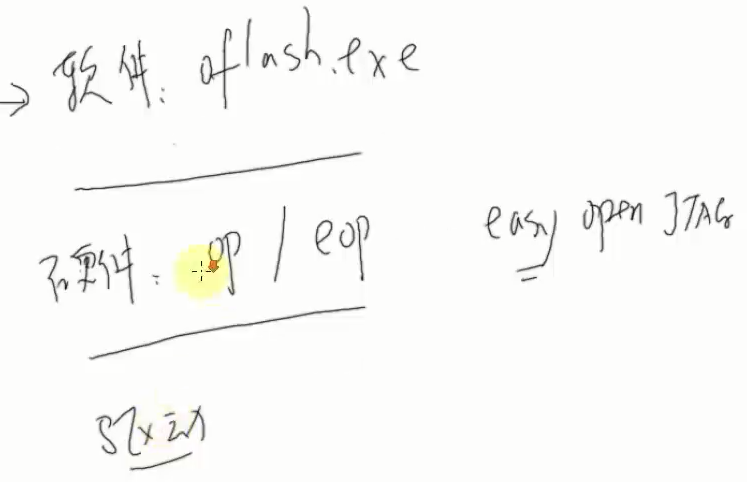 软件: oflash.exe
硬件: op / eop
easy open JTAG
驱动